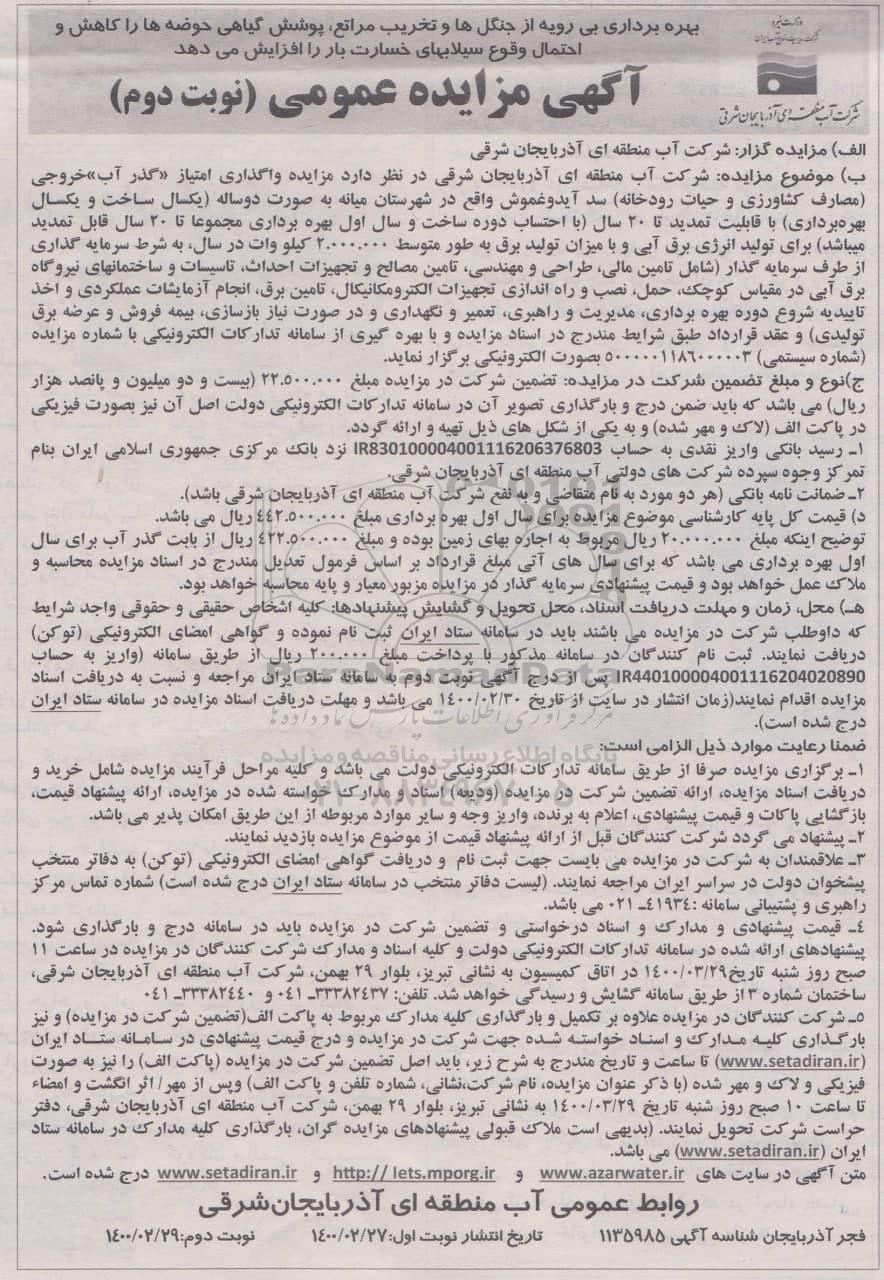 بهره برداری بی رویه از جنگل ها و تخریب مراتع، پوشش گیاهی حوضه ها را کاهش و
احتمال وقوع سیلابهای خسارت بار را افزایش می دهد
وزارت نیرو
شرکت آب منطقه ای آذربایجان شرقی
آگهی مزایده عمومی (نوبت دوم)
الف) مزایده گزار: شرکت آب منطقه ای آذربایجان شرقی
ب) موضوع مزایده: شرکت آب منطقه ای آذربایجان شرقی در نظر دارد مزایده واگذاری امتیاز «گذر آب»خروجی
(مصارف کشاورزی و حیات رودخانه) سد آیدوغموش واقع در شهرستان میانه به صورت دوساله (یکسال ساخت و یکسال
بهره‌برداری) با قابلیت تمدید تا ۲۰ سال (با احتساب دوره ساخت و سال اول بهره برداری مجموعا تا ۲۰ سال قابل تمدید
میباشد) برای تولید انرژی برق آبی و با میزان تولید برق به طور متوسط ۲.۰۰۰.۰۰۰ کیلو وات در سال، به شرط سرمایه گذاری
از طرف سرمایه گذار (شامل تامین مالی، طراحی و مهندسی، تامین مصالح و تجهیزات احداث، تاسیسات و ساختمانهای نیروگاه
برق آبی در مقیاس کوچک، حمل، نصب و راه اندازی تجهیزات الکترومکانیکال، تامین برق، انجام آزمایشات عملکردی و اخذ
تاییدیه شروع دوره بهره برداری، مدیریت و راهبری، تعمیر و نگهداری و در صورت نیاز بازسازی، بیمه فروش و عرضه برق
تولیدی) و عقد قرارداد طبق شرایط مندرج در اسناد مزایده و با بهره گیری از سامانه تدارکات الکترونیکی با شماره مزایده
(شماره سیستمی) ۵۰۰۰۰۰۱۱۸۶۰۰۰۰۰۳ بصورت الکترونیکی برگزار نماید.
ج)نوع و مبلغ تضمین شرکت در مزایده: تضمین شرکت در مزایده مبلغ ۲۲.۵۰۰.۰۰۰ (بیست و دو میلیون و پانصد هزار
ریال) می باشد که باید ضمن درج و بارگذاری تصویر آن در سامانه تدارکات الکترونیکی دولت اصل آن نیز بصورت فیزیکی
در پاکت الف (لاک و مهر شده) و به یکی از شکل های ذیل تهیه و ارائه گردد.
۱ـ رسید بانکی واریز نقدی به حساب IR830100004001116206376803 نزد بانک مرکزی جمهوری اسلامی ایران بنام
تمرکز وجوه سپرده شرکت های دولتی آب منطقه ای آذربایجان شرقی.
۲ـ ضمانت نامه بانکی (هر دو مورد به نام متقاضی و به نفع شرکت آب منطقه ای آذربایجان شرقی باشد).
د) قیمت کل پایه کارشناسی موضوع مزایده برای سال اول بهره برداری مبلغ ۴۴۲.۵۰۰.۰۰۰ ریال می باشد.
توضیح اینکه مبلغ ۲۰.۰۰۰.۰۰۰ ریال مربوط به اجاره بهای زمین بوده و مبلغ ۴۲۲.۵۰۰.۰۰۰ ریال از بابت گذر آب برای سال
اول بهره برداری می باشد که برای سال های آتی مبلغ قرارداد بر اساس فرمول تعدیل مندرج در اسناد مزایده محاسبه و
ملاک عمل خواهد بود و قیمت پیشنهادی سرمایه گذار در مزایده مزبور معیار و پایه محاسبه خواهد بود.
هـ) محل، زمان و مهلت دریافت اسناد، محل تحویل و گشایش پیشنهادها: کلیه اشخاص حقیقی و حقوقی واجد شرایط
که داوطلب شرکت در مزایده می باشند باید در سامانه ستاد ایران ثبت نام نموده و گواهی امضای الکترونیکی (توکن)
دریافت نمایند. ثبت نام کنندگان در سامانه مذکور با پرداخت مبلغ ۲۰۰.۰۰۰ ریال از طریق سامانه (واریز به حساب
IR440100004001116204020890 پس از درج آگهی نوبت دوم به سامانه ستاد ایران مراجعه و نسبت به دریافت اسناد
مزایده اقدام نمایند(زمان انتشار در سایت از تاریخ ۱۴۰۰/۰۲/۳۰ می باشد و مهلت دریافت اسناد مزایده در سامانه ستاد ایران
درج شده است).
ضمنا رعایت موارد ذیل الزامی است:
۱ـ برگزاری مزایده صرفا از طریق سامانه تدارکات الکترونیکی دولت می باشد و کلیه مراحل فرآیند مزایده شامل خرید و
دریافت اسناد مزایده، ارائه تضمین شرکت در مزایده (ودیعه) اسناد و مدارک خواسته شده در مزایده، ارائه پیشنهاد قیمت،
بازگشایی پاکات و قیمت پیشنهادی، اعلام به برنده، واریز وجه و سایر موارد مربوطه از این طریق امکان پذیر می باشد.
۲ـ پیشنهاد می گردد شرکت کنندگان قبل از ارائه پیشنهاد قیمت از موضوع مزایده بازدید نمایند.
۳ـ علاقمندان به شرکت در مزایده می بایست جهت ثبت نام و دریافت گواهی امضای الکترونیکی (توکن) به دفاتر منتخب
پیشخوان دولت در سراسر ایران مراجعه نمایند. (لیست دفاتر منتخب در سامانه ستاد ایران درج شده است) شماره تماس مرکز
راهبری و پشتیبانی سامانه :۴۱۹۳۴ـ ۰۲۱ می باشد.
۴ـ قیمت پیشنهادی و مدارک و اسناد درخواستی و تضمین شرکت در مزایده باید در سامانه درج و بارگذاری شود.
پیشنهادهای ارائه شده در سامانه تدارکات الکترونیکی دولت و کلیه اسناد و مدارک شرکت کنندگان در مزایده در ساعت ۱۱
صبح روز شنبه تاریخ۱۴۰۰/۰۳/۲۹ در اتاق کمیسیون به نشانی تبریز، بلوار ۲۹ بهمن، شرکت آب منطقه ای آذربایجان شرقی،
ساختمان شماره ۳ از طریق سامانه گشایش و رسیدگی خواهد شد. تلفن: ۳۳۳۸۲۴۳۷ـ ۰۴۱ و ۳۳۳۸۲۴۴۰ـ ۰۴۱
۵ـ شرکت کنندگان در مزایده علاوه بر تکمیل و بارگذاری کلیه مدارک مربوط به پاکت الف(تضمین شرکت در مزایده) و نیز
بارگذاری کلیه مدارک و اسناد خواسته شده جهت شرکت در مزایده و درج قیمت پیشنهادی در سامانه ستاد ایران
(www.setadiran.ir) تا ساعت و تاریخ مندرج به شرح زیر، باید اصل تضمین شرکت در مزایده (پاکت الف) را نیز به صورت
فیزیکی و لاک و مهر شده (با ذکر عنوان مزایده، نام شرکت،نشانی، شماره تلفن و پاکت الف) وپس از مهر/ اثر انگشت و امضاء
تا ساعت ۱۰ صبح روز شنبه تاریخ ۱۴۰۰/۰۳/۲۹ به نشانی تبریز، بلوار ۲۹ بهمن، شرکت آب منطقه ای آذربایجان شرقی، دفتر
حراست شرکت تحویل نمایند. (بدیهی است ملاک قبولی پیشنهادهای مزایده گران، بارگذاری کلیه مدارک در سامانه ستاد
ایران (www.setadiran.ir) می باشد.
متن آگهی در سایت های www.azarwater.ir و http:// iets.mporg.ir و www.setadiran.ir درج شده است.
روابط عمومی آب منطقه ای آذربایجان‌شرقی
فجر آذربایجان شناسه آگهی ۱۱۳۵۹۸۵ تاریخ انتشار نوبت اول:۱۴۰۰/۰۲/۲۷ نوبت دوم:۱۴۰۰/۰۲/۲۹
ParsNamadData
مرکز فرآوری اطلاعات پارس نماد داده ها
پایگاه اطلاع رسانی مناقصه و مزایده